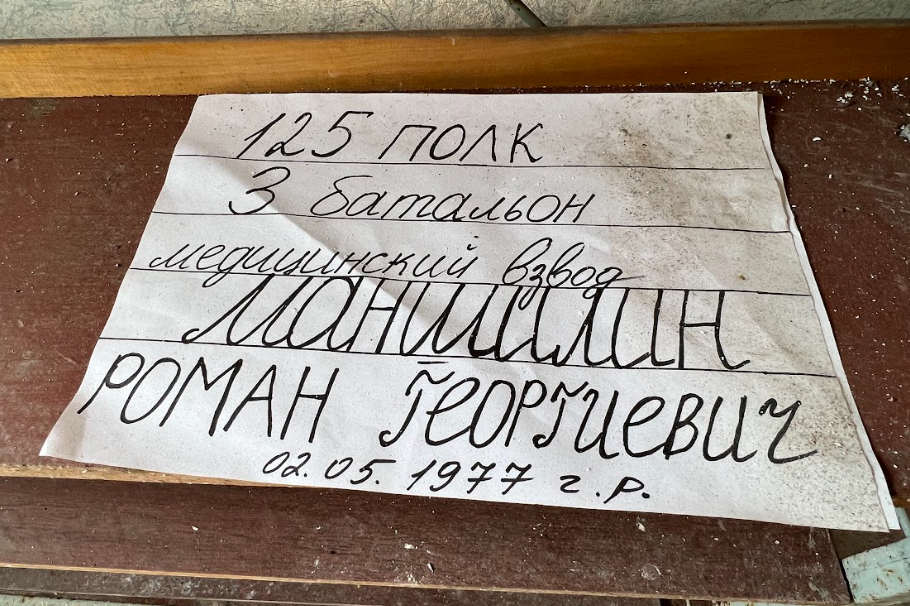 125 полк
3 батальон
медицинский взвод
Маншилин
РОМАН ГЕОРГИЕВИЧ
02.05.1977 г.р.